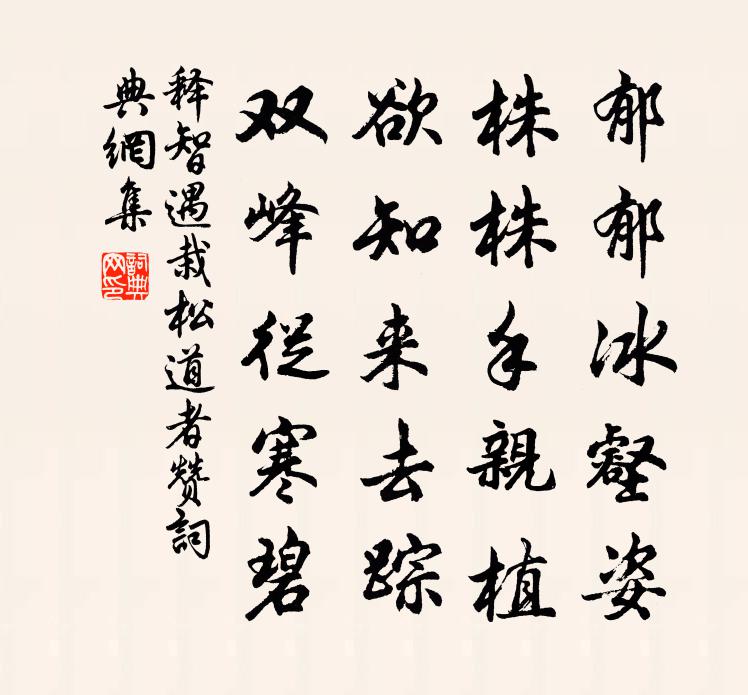 郁郁冰壑姿
株株手親植
欲知来去踪
双峰從寒碧
释智遇栽松道者赞詞
典網集
詞典网印